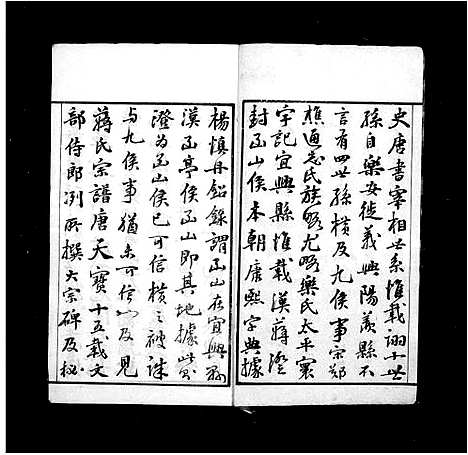 史唐書宰相世系惟載詡十世
孫自樂安徙義興陽羨縣不
言有四世孫橫及九侯事宋鄭
樵通志氏族略尤略樂氏太平寰
宇記宜興縣惟載漢蔣澄
封㔾山侯本朝康熙字典據
楊慎丹鉛錄謂㔾山在宜興縣
漢㔾亭侯㔾山即其地據此則
澄為㔾山侯已可信橫之被誅
与九侯事猶未可信也及見
蔣氏宗譜唐天寶十五載文
部侍郎冽所撰大宗碑及秘